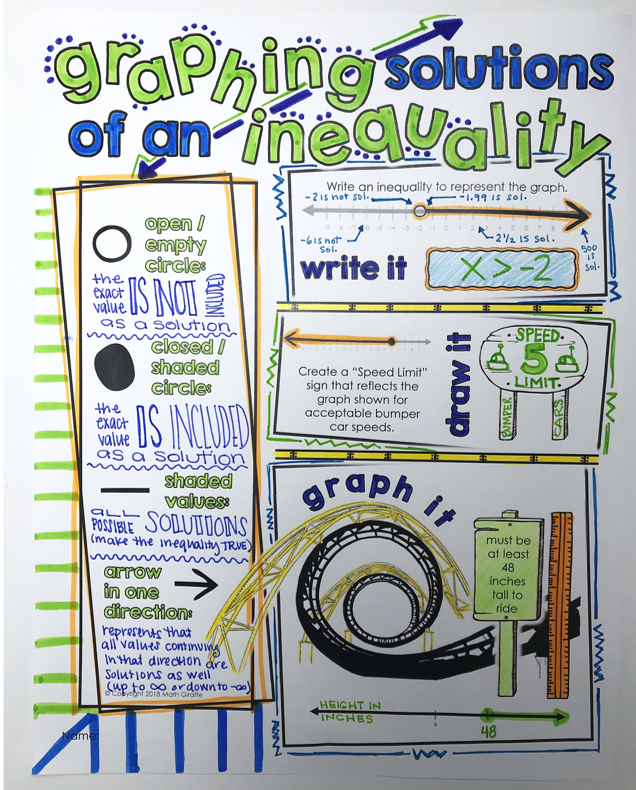 graphing solutions
of an inequality
open /
empty
circle:
the
exact
value IS NOT INCLUDED
as a solution
closed /
shaded
circle:
the
exact
value IS INCLUDED
as a solution
shaded
values:
ALL
POSSIBLE SOLUTIONS
(make the inequality TRUE)
arrow
in one
direction:
represents that
all values continuing
in that direction are
solutions as well
(up to ∞ or down to -∞)
© Copyright 2018 Math Giraffe
Name:
Write an inequality to represent the graph.
-2 is not sol.
-1.99 is sol.
-6 is not
sol.
2 1/2 is sol.
500
is
sol.
write it
x > -2
Create a "Speed Limit"
sign that reflects the
graph shown for
acceptable bumper
car speeds.
draw it
SPEED
5
LIMIT
BUMPER
CARS
graph it
must be
at least
48
inches
tall to
ride
HEIGHT IN
INCHES
48